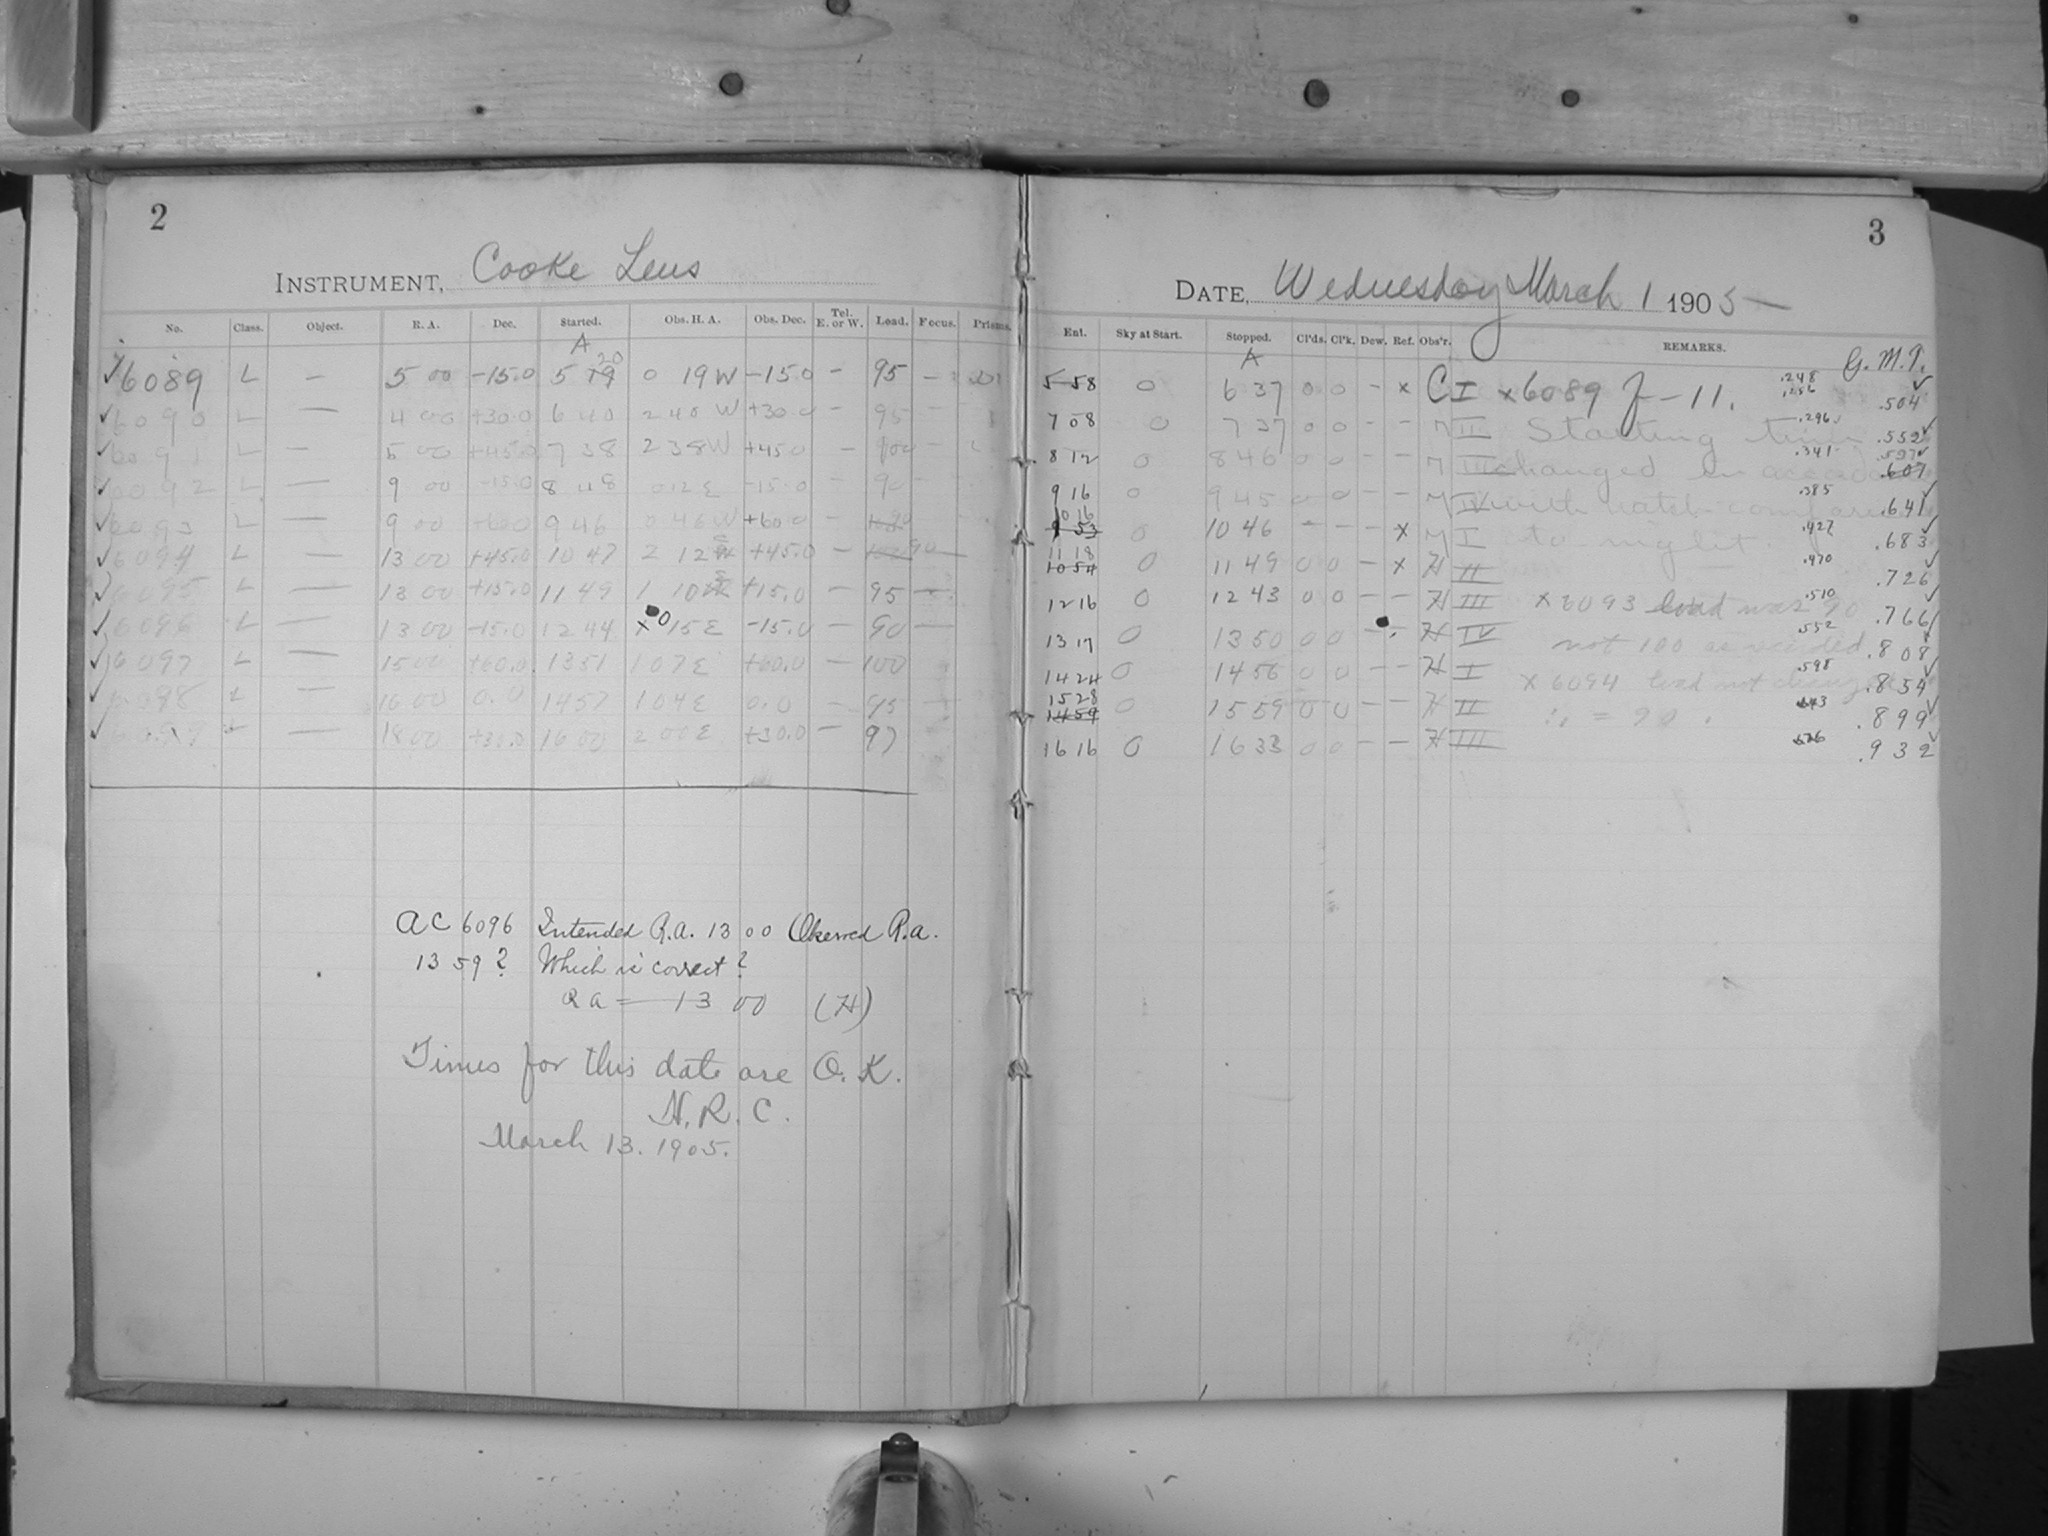 2
INSTRUMENT, Cooke Lens
No. Class. Object. R. A. Dec. Started. Obs. H. A. Obs. Dec. Tel. E. or W. Load. Focus. Prisms.
A
✓ 6089 L — 5 00 -15.0 5 19 20 0 19 W -15.0 - 95 -
✓ 6090 L — 4 00 +30.0 6 40 2 40 W +30.0 - 95 -
✓ 6091 L — 5 00 +45.0 7 38 2 38 W +45.0 - 100 -
✓ 6092 L — 9 00 -15.0 8 48 0 12 E -15.0 - 90 -
✓ 6093 L — 9 00 +60.0 9 46 0 46 W +60.0 -
✓ 6094 L — 13 00 +45.0 10 47 2 12 E +45.0 - 90 —
✓ 6095 L — 13 00 +15.0 11 49 1 10 E +15.0 - 95 —
✓ 6096 L — 13 00 -15.0 12 44 x 0 15 E -15.0 - 90 —
✓ 6097 L — 15 00 +60.0 13 51 1 07 E +60.0 - 100
✓ 6098 L — 16 00 0.0 14 57 1 04 E 0.0 - 95 -
✓ 6099 L — 18 00 +30.0 16 00 2 00 E +30.0 - 97
AC 6096 Intended R.A. 13 00 Observed R.a.
13 59? Which is correct?
R a = 13 00 (H)
Times for this date are O.K.
H. R. C.
March 13. 1905.
3
DATE, Wednesday March 1 1905
Ent. Sky at Start. Stopped. Cl'ds. Cl'k. Dew. Ref. Obs'r. REMARKS.
A G. M. T.
5 58 0 6 37 0 0 - x C I x 6089 J - 11. .248 .256 .504 ✓
7 08 0 7 37 0 0 - - M II Starting time .296 .552 ✓
8 12 0 8 46 0 0 - - M III changed in .341 .597 ✓ .607
9 16 0 9 45 0 0 - - M IV with watch .385 .641 ✓
10 16 9 53 0 10 46 - - - x M I to night. .427 .683 ✓
11 18 10 54 0 11 49 0 0 - x H II .470 .726 ✓
12 16 0 12 43 0 0 - - H III x 6093 load was 90 .510 .766 ✓
13 17 0 13 50 0 0 - . H IV not 100 as recorded .552 .808 ✓
14 24 0 14 56 0 0 - - H I x 6094 load not changed .598 .854 ✓
15 28 14 59 0 15 59 0 0 - - H II ∴ = 90. .643 .899 ✓
16 16 0 16 33 0 0 - - H III .676 .932 ✓